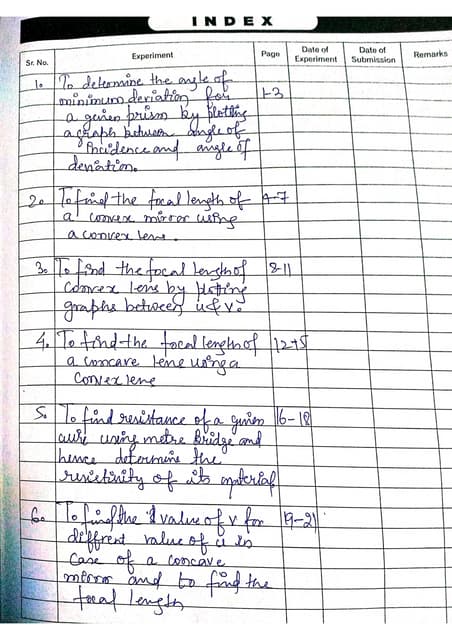 INDEX
Sr. No. Experiment Page Date of Experiment Date of Submission Remarks
1. To determine the angle of 1-3
minimum deviation for
a given prism by plotting
a graph between angle of
incidence and angle of
deviation.
2. To find the focal length of 4-7
a convex mirror using
a convex lens.
3. To find the focal length of 8-11
Convex lens by plotting
graphs between u & v.
4. To find the focal length of 12-15
a concave lens using a
Convex lens
5. To find resistance of a given 16-18
wire using metre Bridge and
hence determine the
resistivity of its material
6. To find the value of v for 19-21
different value of u in
Case of a concave
mirror and to find the
focal length